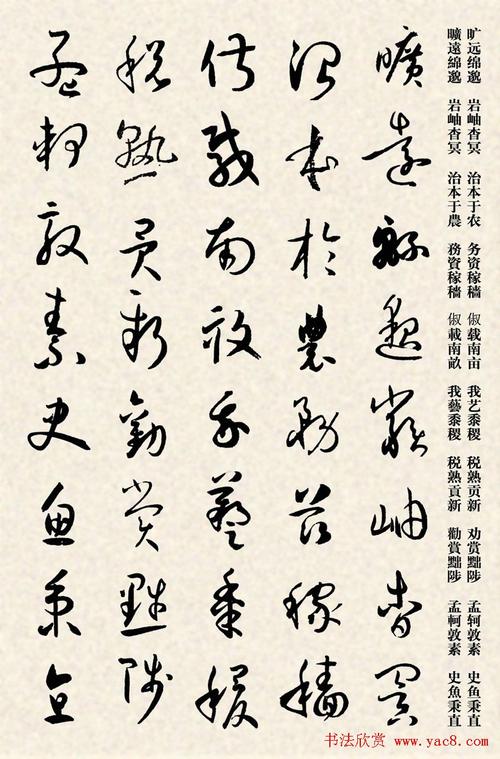 旷远绵邈 岩岫杳冥 治本于农 务资稼穑 俶载南亩 我艺黍稷 税熟贡新 劝赏黜陟 孟轲敦素 史鱼秉直
曠遠綿邈 岩岫杳冥 治本于農 務資稼穡 俶載南畝 我藝黍稷 税熟貢新 勸賞黜陟 孟軻敦素 史魚秉直
曠遠緜邈巖岫杳冥
治本於農務茲稼穡
俶載南畝我藝黍稷
稅熟貢新勸賞黜陟
孟軻敦素史魚秉直
书法欣赏 www.yac8.com